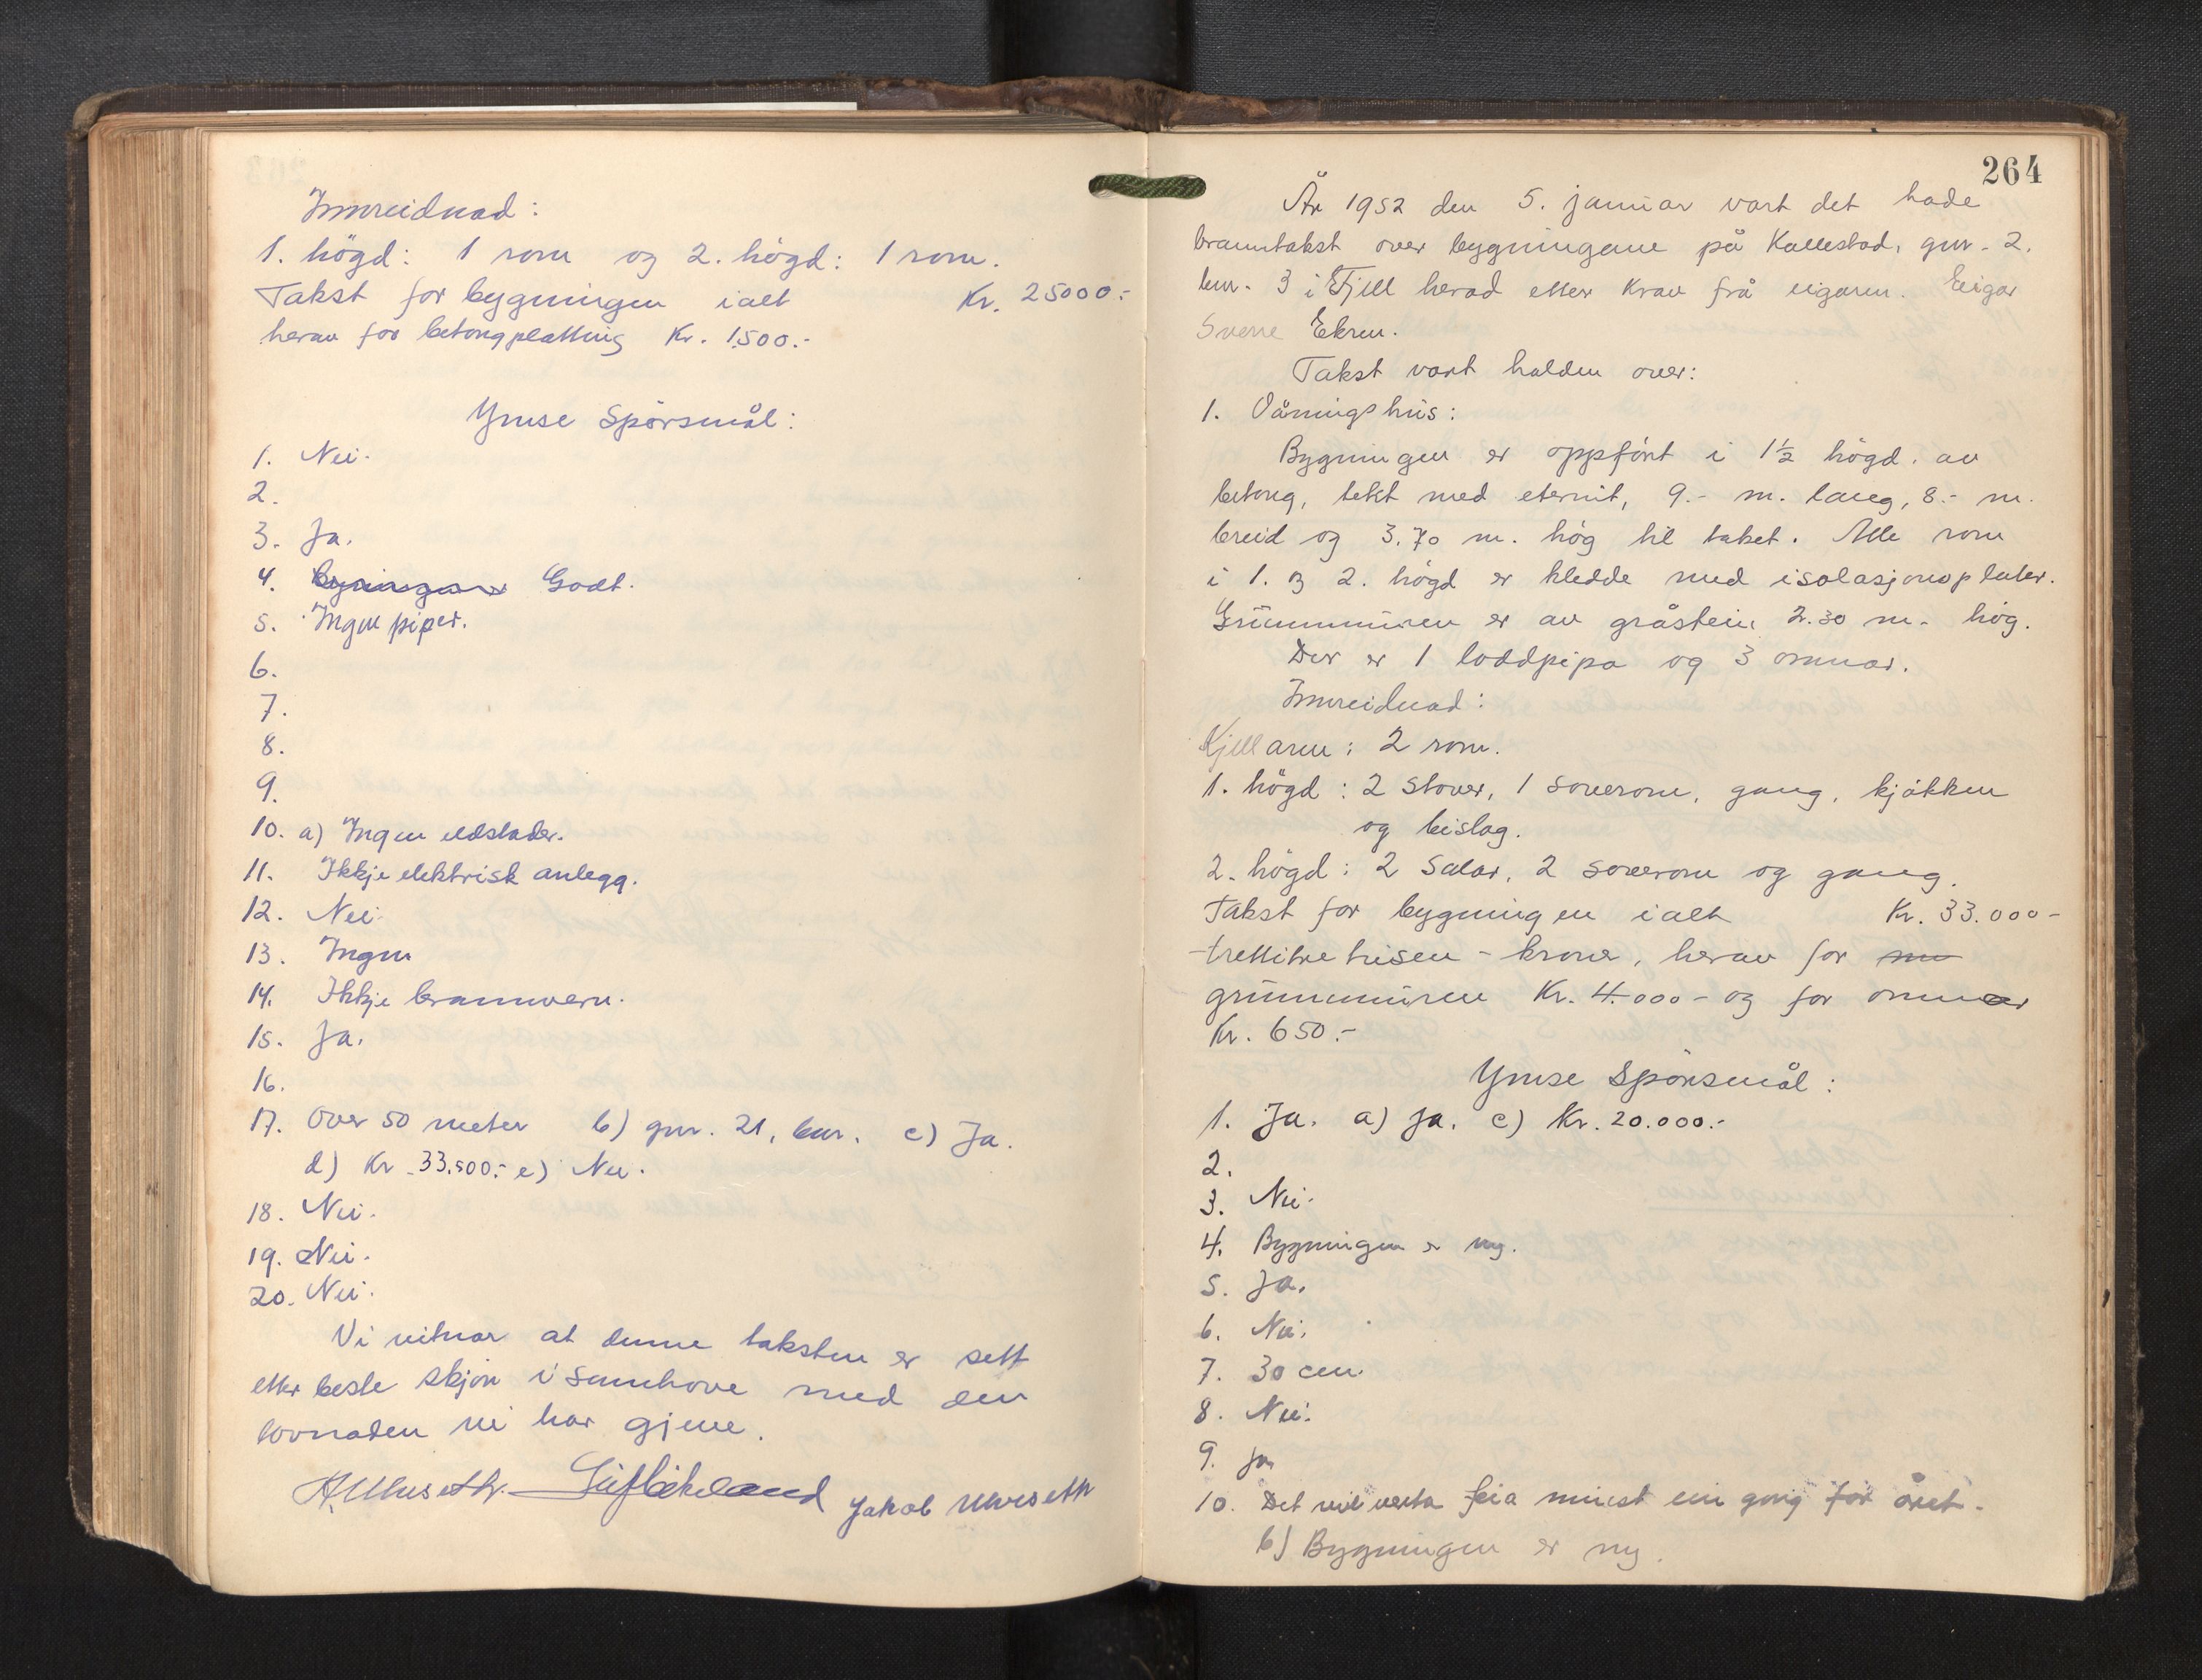 Innreidnad:
1. högd: 1 rom og 2. högd: 1 rom.
Takst for bygningen ialt Kr. 25000.-
herav for betongplatting Kr. 1500.-
Ymse Spörsmål:
1. Nei.
2.
3. Ja.
4. Godt.
5. Ingen piper.
6.
7.
8.
9.
10. a) Ingen eldstader.
11. Ikkje elektrisk anlegg.
12. Nei.
13. Ingen
14. Ikkje brannvern.
15. Ja.
16.
17. Over 50 meter b) gnr. 21, bnr. c) Ja.
d) Kr. 33.500.- e) Nei.
18. Nei.
19. Nei.
20. Nei.
Vi vitnar at denne taksten er sett
etter beste skjön i samhove med den
lovnaden vi har gjeve.
Jakob Ulveseth
264
År 1952 den 5. januar vart det hade
branntakst over bygningane på Kallestad, gnr. 2.
bnr. 3 i Fjell herad etter krav frå eigaren. Eigar
Sverre Ekren.
Takst vart halden over:
1. Våningshus:
Bygningen er oppfört i 1½ högd. av
betong, tekt med eternit, 9.- m. lang, 8.- m.
breid og 3.70 m. hög til taket. Alle rom
i 1. og 2. högd er kledde med isolasjonsplater.
Grunnmuren er av gråstein 2.30 m. hög.
Der er 1 loddpipa og 3 omnar.
Innreidnad:
Kjellaren: 2 rom.
1. högd: 2 stover, 1 soverom, gang, kjökken
og bislag.
2. högd: 2 Salar, 2 soverom og gang.
Takst for bygningen ialt Kr. 33.000-
-trettitretusen - kroner, herav for
grunnmuren Kr. 4.000- og for omnar
Kr. 650.-
Ymse Spörsmål:
1. Ja. a) Ja. c) Kr. 20.000.-
2.
3. Nei.
4. Bygningen er ny.
5. Ja.
6. Nei.
7. 30 cm.
8. Nei.
9. Ja
10. Det vil verta feia minst ein gong for året.
b) Bygningen er ny.